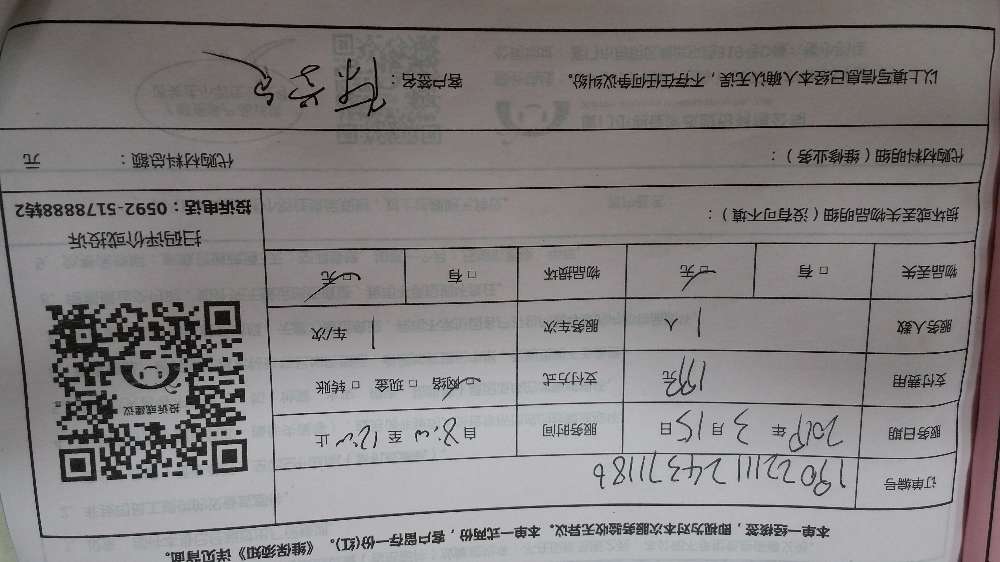 本单一经核签，即视为对本次服务验收无异议。本单一式两份，客户留存一份(红)。《维保须知》详见背面。
订单编号 190221112437118b
服务日期 2019 年 3 月 15 日 服务时间 自 8:00 至 12:00 止
支付费用 元 支付方式 □ 网络 □ 现金 □ 转账
服务人数 1 人 服务车次 1 车/次
物品丢失 □ 有 □ 无 物品损坏 □ 有 □ 无
损坏或丢失物品明细（没有可不填）：
投诉或建议
扫码评价或投诉
投诉电话：0592-5178888转2
代购材料明细（维修业务）： 代购材料总额： 元
以上填写信息已经本人确认无误，不存在任何争议纠纷。 客户签名：